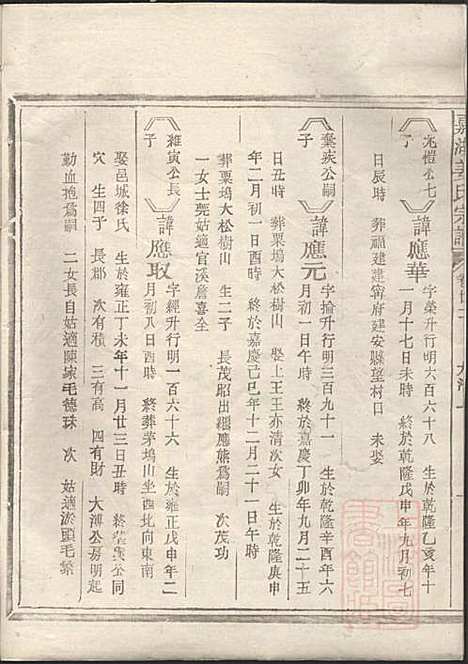 嘉湖姜氏宗譜
光愷公七子
諱應華
字榮升行明六百六十八 生於乾隆乙亥年十
一月十七日未時 終於乾隆戊申年九月初七
日辰時 葬福建建寧府建安縣望村口 未娶
棄疾公嗣子
諱應元
字掄升行明三百九十一 生於乾隆辛酉年六
月初一日午時 終於嘉慶丁卯年九月二十五
日丑時 葬栗塢大松樹山 娶上王王亦清次女 生於乾隆庚申
年二月初一日酉時 終於嘉慶己巳年十二月二十一日午時
葬栗塢大松樹山 生二子 長茂昭出繼應熊為嗣 次茂功
一女士薨姑適官溪詹喜全
維寅公長子
諱應取
字經升行明一百六十六 生於雍正戊申年二
月初八日酉時 終葬茅塢山坐西北向東南
娶邑城徐氏 生於雍正丁未年十一月廿三日丑時 終葬公
穴 生四子 長郡 次有積 三有高 四有財 大溥公房明
勤血抱為嗣 二女長自姑適陳家毛德珠 次 姑適淤頭毛